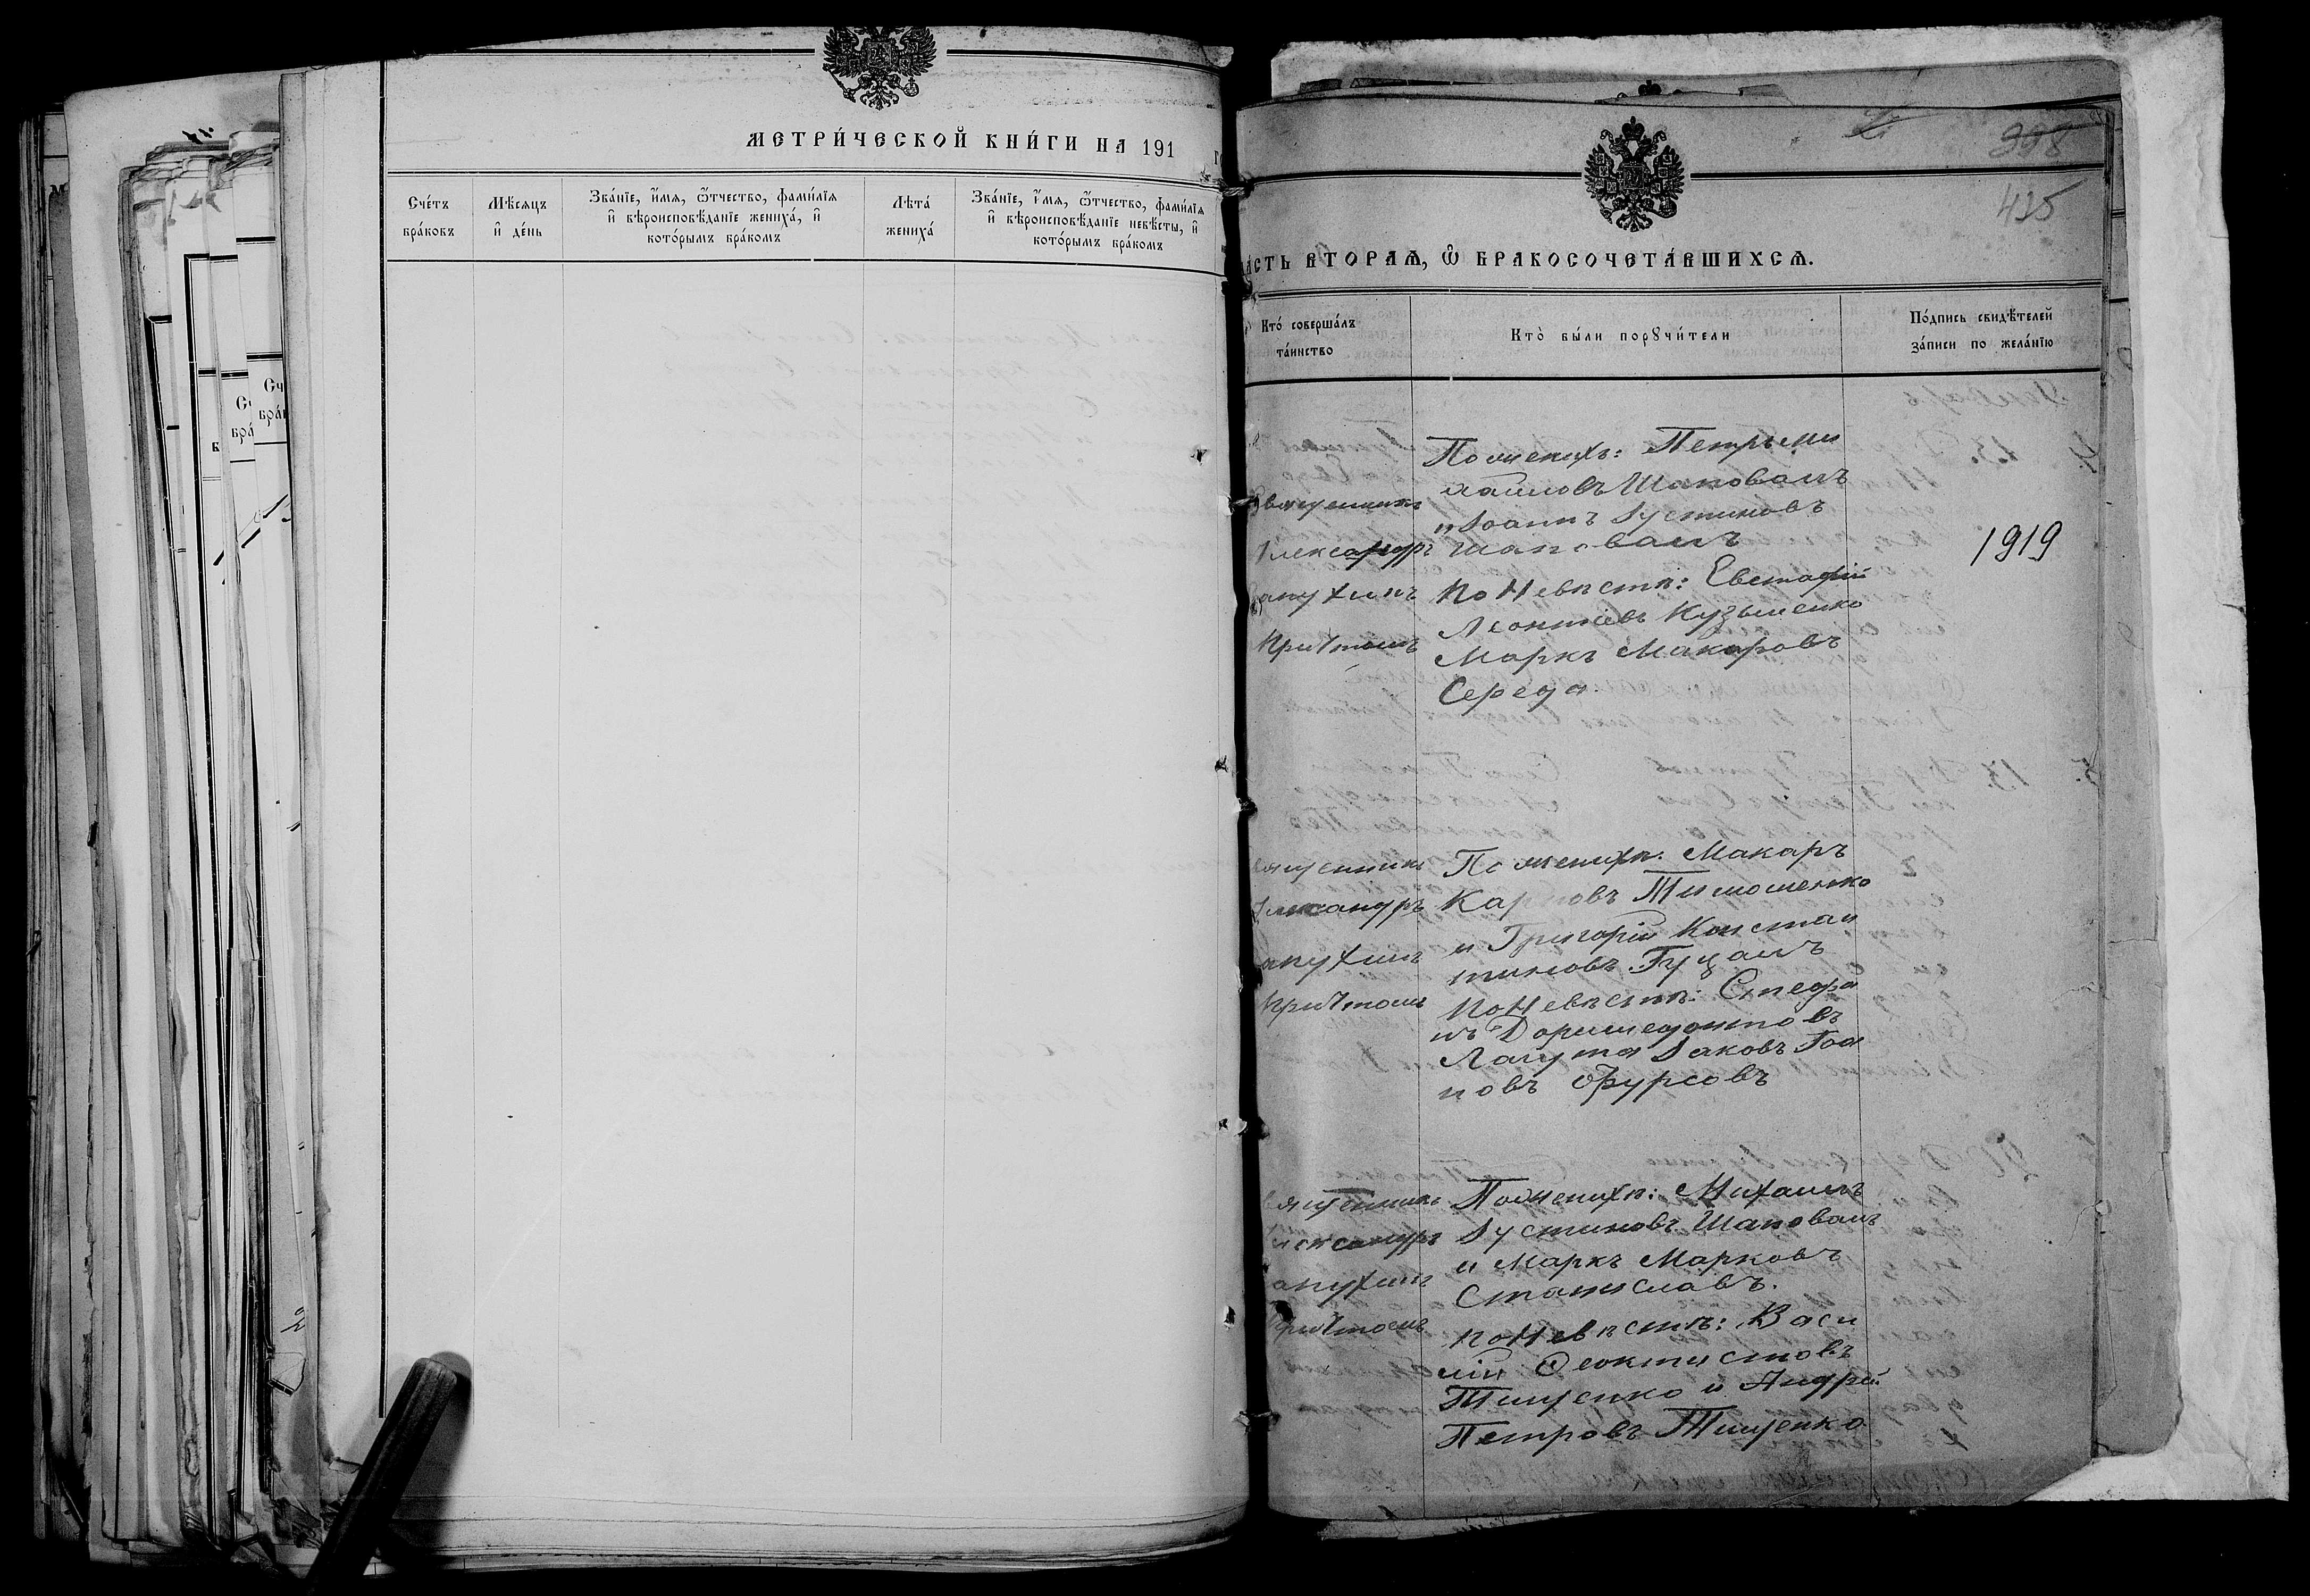 МЕТРИ́ЧЕСКОЙ КНИ́ГИ НА 191
Сче́тъ бра́ковъ
Мѣ́сяцъ и҆ де́нь
Зва́нїе, и҆́мя, ѻ҆́тчество, фами́лїя и҆ вѣроисповѣ́данїе жениха́, и҆ кото́рымъ бра́комъ
Лѣта́ жениха́
Зва́нїе, и҆́мя, ѻ҆́тчество, фами́лїя и҆ вѣроисповѣ́данїе невѣ́сты, и҆ кото́рымъ бра́комъ
998
425
А́СТЬ ВТОРАѦ, Ѽ БРАКОСОЧЕТА́ВШИХСѦ.
Кто́ соверша́лъ та́инство
Кто̀ бы́ли порꙋчи́тели
По́дпись свидѣ́телей за́писи по жела́нїю
По женихѣ: Петръ Ми
хаиловъ Шаповалъ
и Іоаннъ Іустиновъ
Шаповалъ
по Невѣстѣ: Евстафій
Леонтіевъ Кузьменко
Маркъ Макаровъ
Середа
вященникъ
лександръ
апухинъ
причтомъ
1919
По женихѣ: Макаръ
Карповъ Тимошенко
и Григорій Констан
тиновъ Гуцалъ
по Невѣстѣ: Стефа
нъ Доримедонтовъ
Лагута Іаковъ Іоа
новъ Фурсовъ
ященникъ
лександръ
апухинъ
причтомъ
По женихѣ: Михаилъ
Іустиновъ Шаповалъ
и Маркъ Марковъ
Станиславъ.
по Невѣстѣ: Васи
лій Феоктистовъ
Тищенко и Андрей
Петровъ Тищенко
ященникъ
лександръ
апухинъ
причтомъ